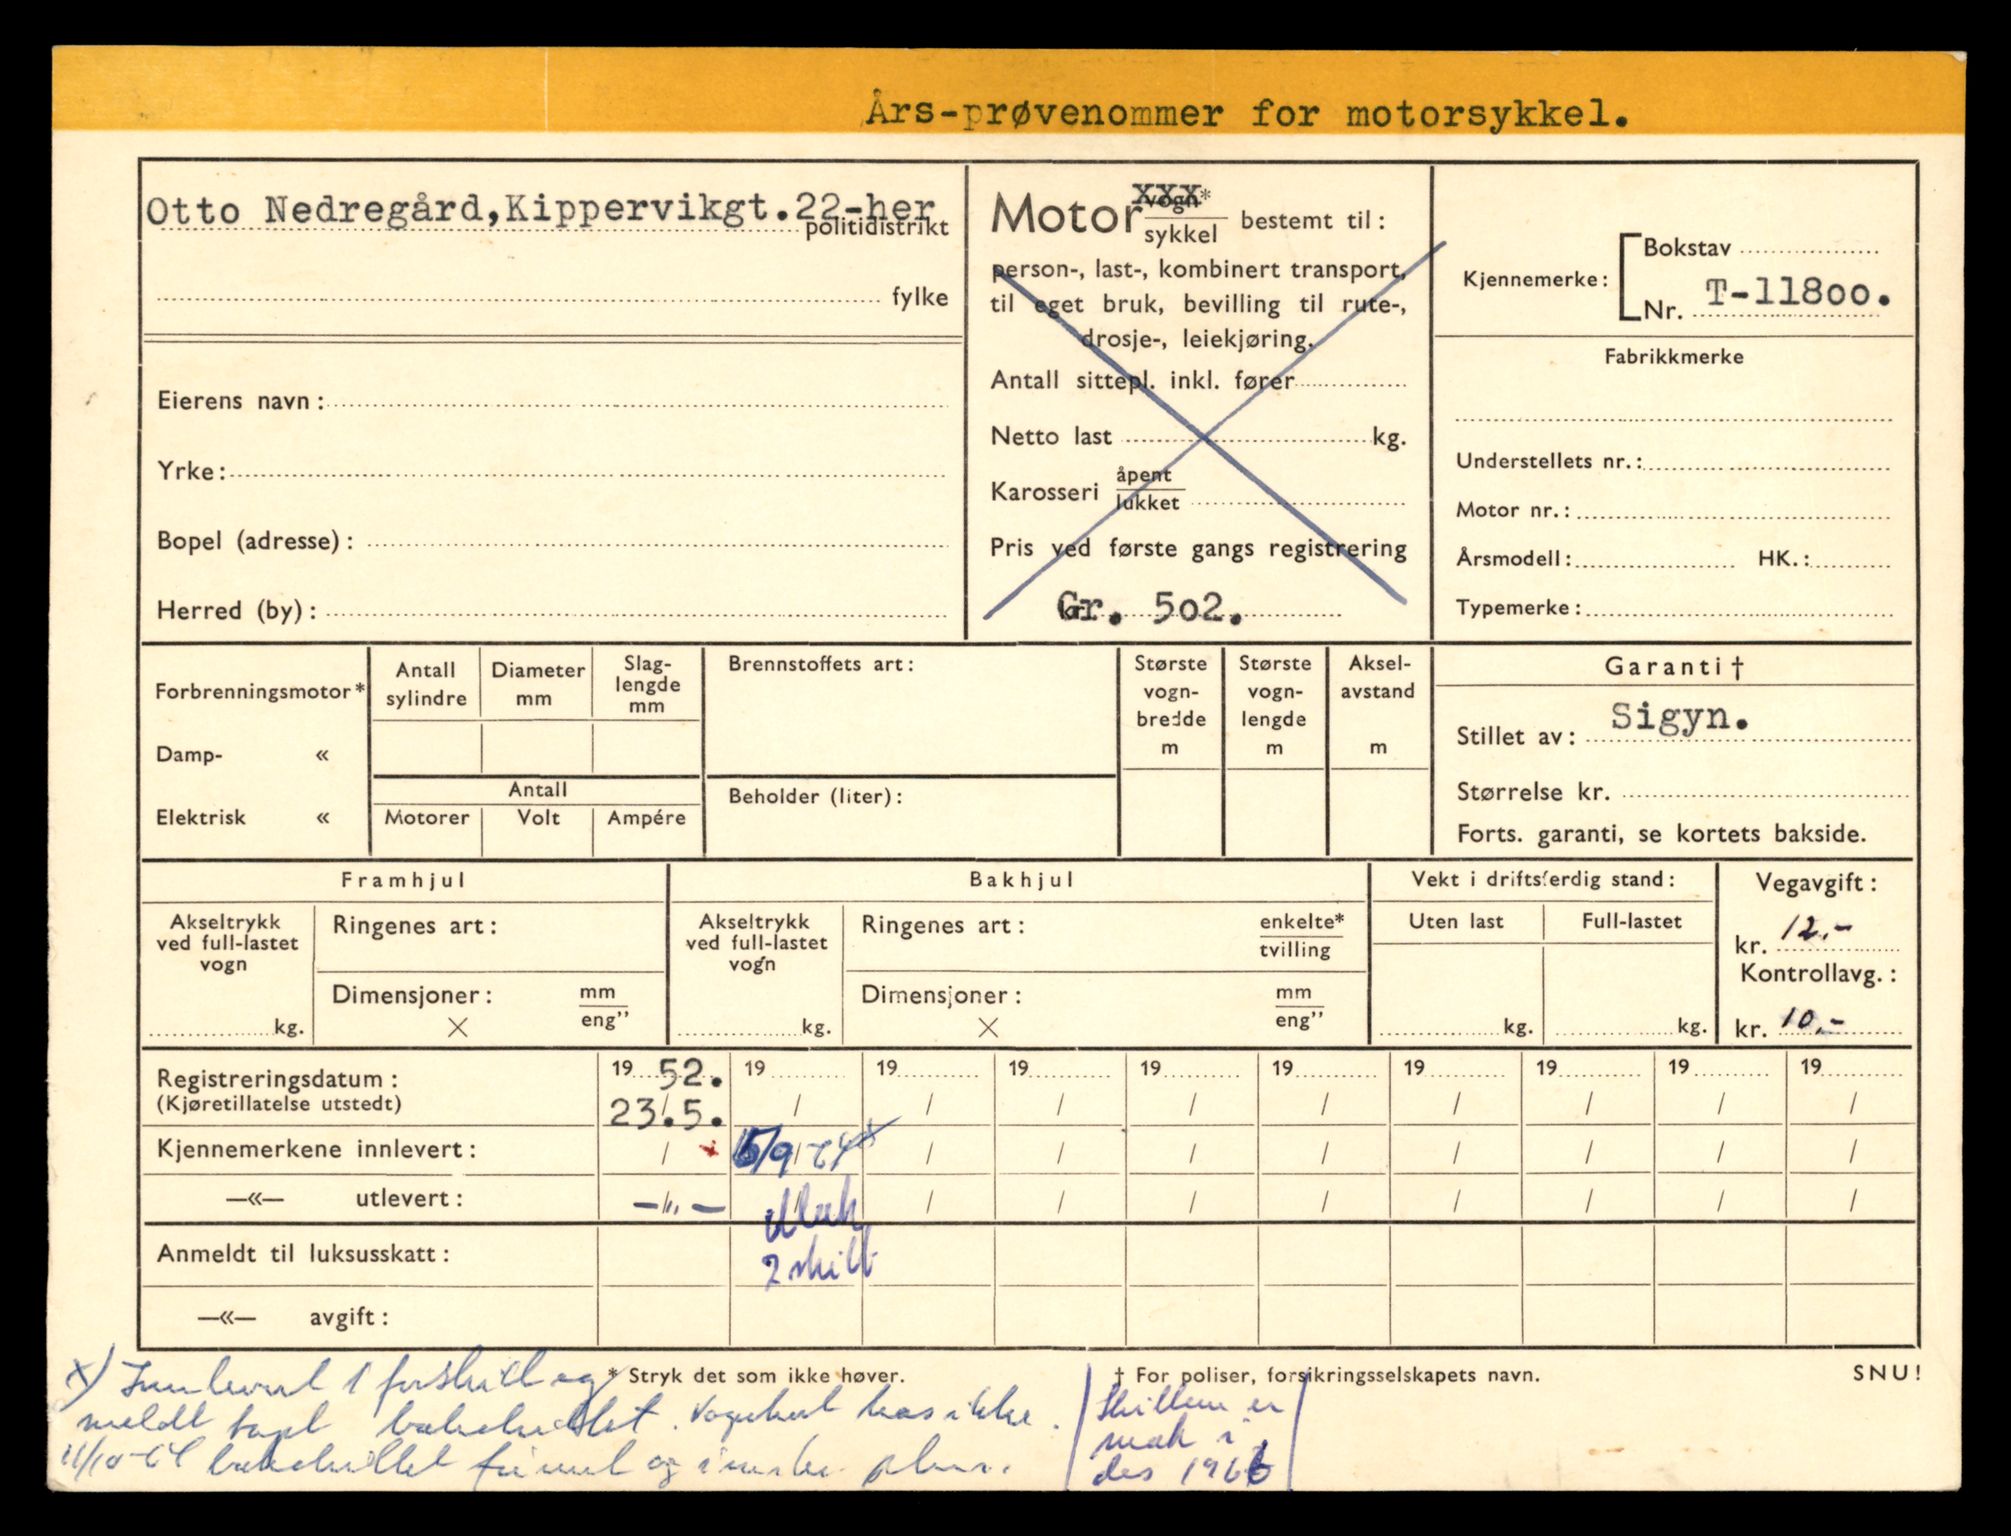 Års-prøvenommer for motorsykkel.
Otto Nedregård, Kippervikgt.22-her
politidistrikt
fylke
Eierens navn:
Yrke:
Bopel (adresse):
Herred (by):
Motor vogn* xxx
sykkel bestemt til:
person-, last-, kombinert transport,
til eget bruk, bevilling til rute-,
drosje-, leiekjøring.
Antall sittepl. inkl. fører
Netto last kg.
Karosseri åpent
lukket
Pris ved første gangs registrering
kr. Gr. 502.
Kjennemerke: Bokstav
Nr. T-11800.
Fabrikkmerke
Understellets nr.:
Motor nr.:
Årsmodell: HK.:
Typemerke:
Forbrenningsmotor*
Damp- «
Elektrisk «
Antall sylindre
Diameter mm
Slag-lengde mm
Antall
Motorer Volt Ampére
Brennstoffets art:
Beholder (liter):
Største vogn-bredde m
Største vogn-lengde m
Aksel-avstand m
Garanti†
Stillet av: Sigyn.
Størrelse kr.
Forts. garanti, se kortets bakside.
Framhjul
Akseltrykk
ved full-lastet
vogn
kg.
Ringenes art:
Dimensjoner: mm
× eng”
Bakhjul
Akseltrykk
ved full-lastet
vogn
kg.
Ringenes art: enkelte*
tvilling
Dimensjoner: mm
× eng”
Vekt i driftsferdig stand:
Uten last Full-lastet
kg. kg.
Vegavgift:
kr. 12.-
Kontrollavg.:
kr. 10.-
Registreringsdatum: 19 52. 19 19 19 19 19 19 19 19 19
(Kjøretillatelse utstedt) 23.5. / / / / / / / / /
Kjennemerkene innlevert: / 15/9-64 x / / / / / / / /
—«— utlevert: -"- Mak / / / / / / / /
2 skilt
Anmeldt til luksusskatt:
—«— avgift:
* Stryk det som ikke høver.
† For poliser, forsikringsselskapets navn.
SNU!
x) Innlevert 1 forskilt og
meldt tapt bakskiltet. Vognkort has ikke.
11/10-64 bakskiltet funnet og
Skiltene er
mak i
des 1966